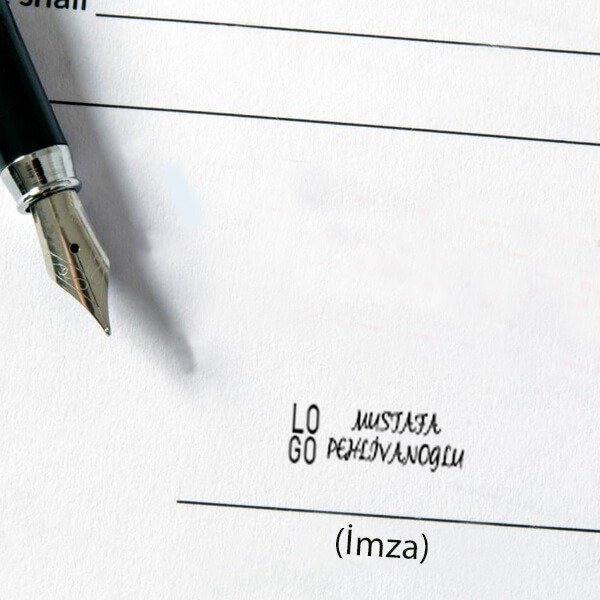 shall
LO
GO
MUSTAFA
PEHLİVANOGLU
(İmza)